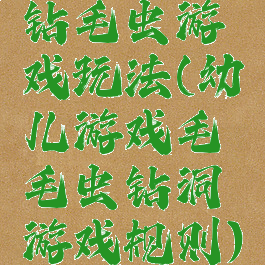 钻毛虫游
戏玩法(幼
儿游戏毛
毛虫钻洞
游戏规则)